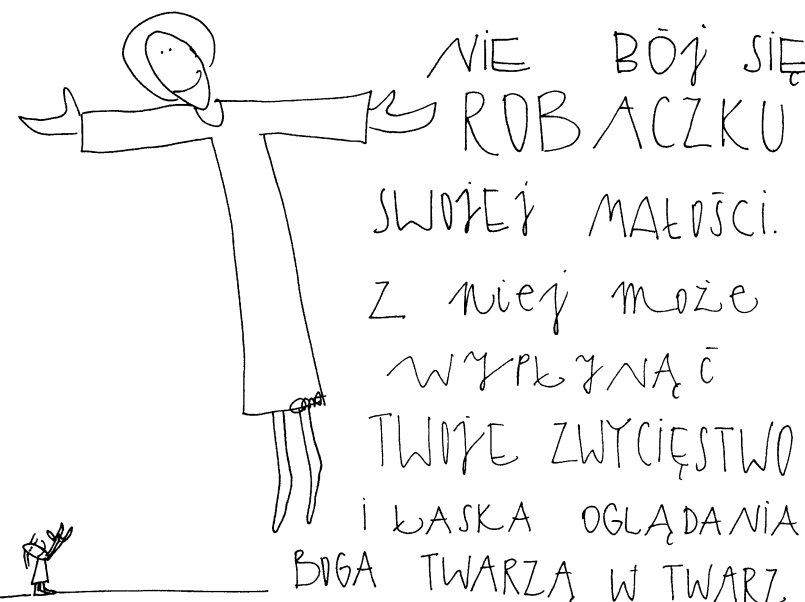 NIE BÓJ SIĘ
ROBACZKU
SWOJEJ MAŁOŚCI.
Z niej może
WYPŁYNĄĆ
TWOJE ZWYCIĘSTWO
I ŁASKA OGLĄDANIA
BOGA TWARZĄ W TWARZ